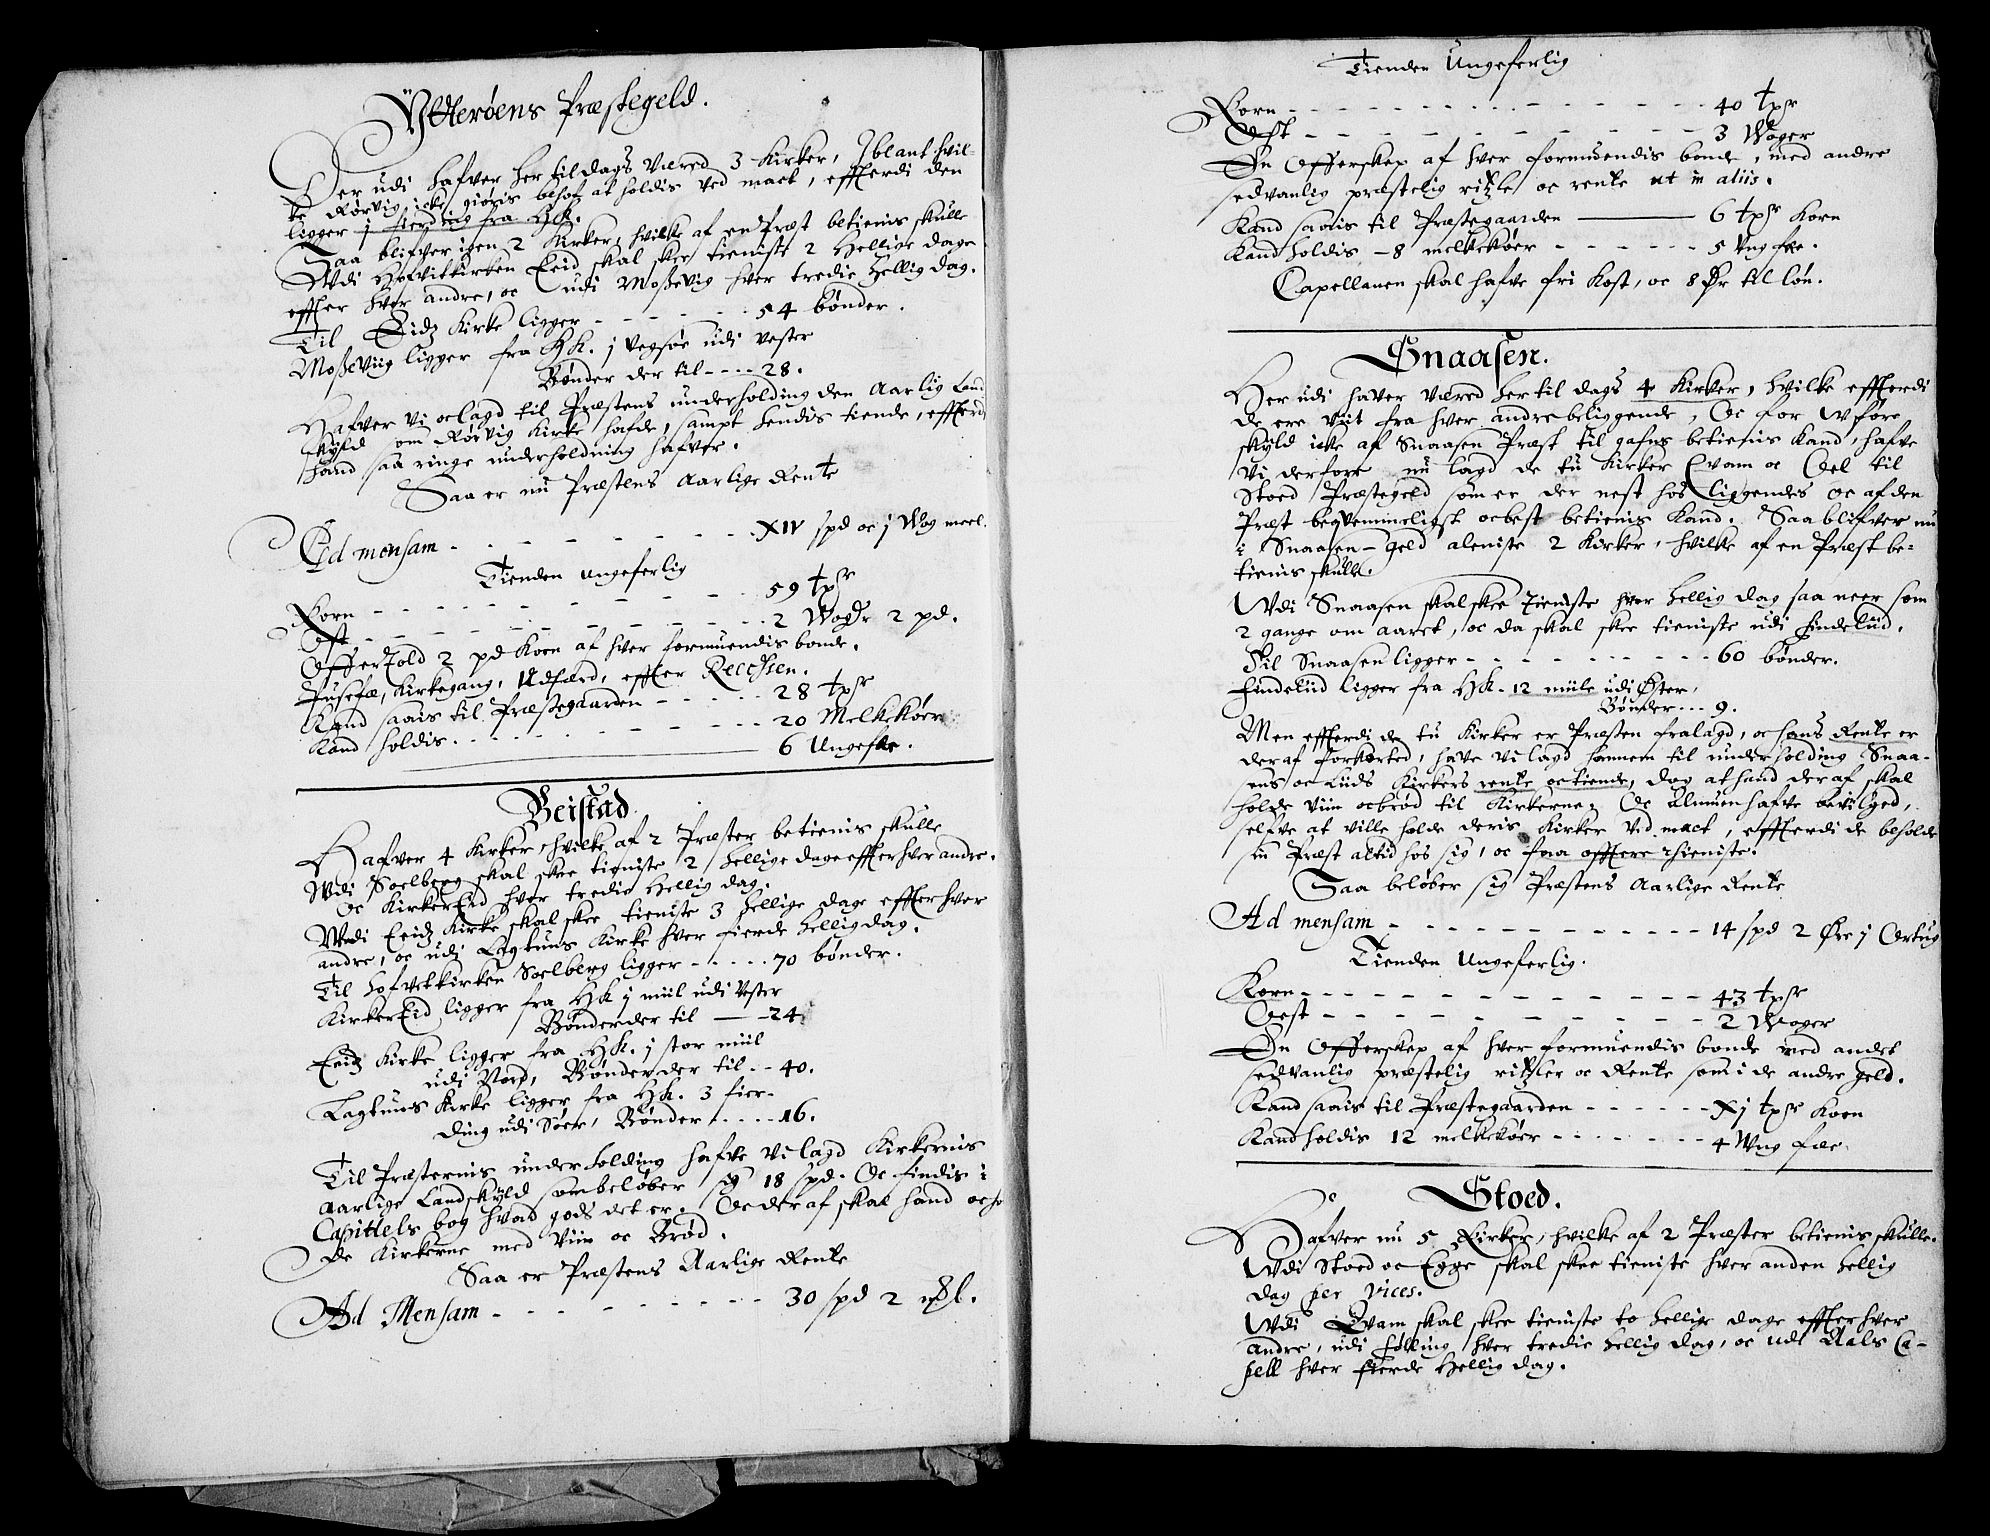 Ytterøens Præstegeld.
Der udi hafver her til dags Været 3 Kirker, Iblant hvil-
ke Rørvig icke giøris behof at holdis ved mact, effterdi den
ligger j fierding fra HK.
Saa blifver igen 2 Kirker, hvilke af en Præst betienis skulle
Wdi Hofvitkirken Eeid skal skee tieniste 2 Hellige dage
effter hver andre, oc udi Moßevig hver tredie hellig dag.
Til Eidz Kirke ligger - - - - - - 54 bønder.
Moßeviig ligger fra HK. j Vegsøe udi Vester
Bønder der til - - - - 28.
Hafver vi oc lagd til Præstens underholding den Aarlig Land
skyld om Rørvig Kirke hafde, sampt hendis tiende, effterdi
hand saa ringe underholdning hafver.
Saa er nu Præstens Aarlige Rente
Ad mensam - - - - - - - - XIV spd oc j Wog meel.
Tienden ungeferlig
Korn - - - - - - - - - - 59 tpr
Ost - - - - - - - - - - 2 Woger 2 pd.
Offertold 2 pd Korn af hver formuendis bonde.
Pusefæ, Kirkegang, Udfærd, effter Recessen.
Kand saais til Præstegaarden - - - - - 28 tpr
Kand holdis. - - - - - - - - 20 Melkekøer
6 Ungefæe.
Beistad
Hafver 4 Kirker, hvilke af 2 Præster betienis skulle
Wdi Soelberg skal skee tieniste 2 hellige dage effter hver andre.
Oc KirkerEid hver tredie Hellig dag.
Wdi Eeidz Kirke skal skee tieniste 3 hellige dage effter hver
andre, oc udi Lagtuns Kirke hver fierde hellig dag.
Til hofvetkirken Soelberg ligger - - - - - 70 bønder.
KirkerEid ligger fra HK j miil udi Vester
Bønder der til — 24
Eeidz Kirke ligger fra HK. j stor miil
udi Nord, Bønder der til - - 40.
Lagtuns Kirke ligger fra HK. 3 fier-
ding udi Søer, Bønder - - - - 16.
Til Præsternis underholding hafve Vi lagd Kirkernis
Aarlige Landskyld som beløber sig 18 spd. Oc findis i
Capittels bog hvad gods det er. Oc der af skal hand oc hol
de Kirkerne med Viin oc Brød.
Saa er Præstens Aarlige Rente
Ad Mensam - - - - - - - - 30 spd 2
Tienden Ungeferlig
Korn - - - - - - - - - - - - 40 tpr
Ost - - - - - - - - - - - - 3 Woger
En Offerskep af hver formuendis bonde, med andre
sedvanlig præstelig oc rente ut in aliis.
Kand saais til Præstegaarden ——— 6 tpr Korn
Kand holdis - 8 melkekøer - - - - - - 5 Ung fæe.
Capellanen skal hafve fri Kost, oc 8 til løn.
Snaasen.
Her udi haver Været her til dags 4 Kirker, hvilke effterdi
de ere Viit fra hver andre beliggende, Oc for Wføre
skyld icke af Snaasen Præst til gafns betienis Kand, hafve
Vi derfore nu lagd de tu Kirker Qvam oc Oel til
Stoed Præstegeld som er der nest hos liggendes oc af den
Præst beqvemmeligst oc best betienis Kand. Saa blifver nu
i Snaasen-geld aleniste 2 Kirker, hvilke af en Præst be-
tienis skulle.
Wdi Snaasen skal skee Tieniste hver hellig dag saa neer som
2 gange om aaret, oc da skal skee tieniste udi Findelüd.
Til Snaasen ligger - - - - - - - - 60 bønder.
Findelüd ligger fra HK - 12 miile udi Øster,
Bønder - - - 9.
Men effterdi de tu Kirker er Præsten fralagd, oc hans Rente er
der af forkorted, have Vi lagd hannem til underholding Snaa-
sens oc Lüds Kirkers rente oc tiende, dog at hand der af skal
holde Viin oc brød til Kirkerne, Oc Almuen hafve bevilged,
selfve at ville holde deris Kirker Ved mact, effterdi de beholde
sin Præst altid hos sig, oc faa offtere thieniste.
Saa beløber sig Præstens Aarlige Rente
Ad mensam - - - - - - - - - - - 14 spd 2 Øre j Ortug
Tienden Ungeferlig.
Korn - - - - - - - - - - - - 43 tpr
Oest - - - - - - - - - - - - 2 Woger
En Offerskep af hver formuendis bonde med andet
sedvanlig præstelig oc Rente som i de andre geld.
Kand saais til Præstegaarden - - - - - - Xj tpr Korn
Kand holdis 12 melkekøer - - - - - - 4 Wng fæe
Stoed.
Hafver nu 5 Kirker, hvilke af 2 Præster betienis skulle.
Wdi Stoed oc Egge skal skee tieniste hver anden hellig
dag per vices.
Wdi Qvam skal skee tieniste to hellige dage effter hver
andre, udi Følling hver tredie hellig dag, oc udi Aals Ca-
pell hver fierde Hellig dag.